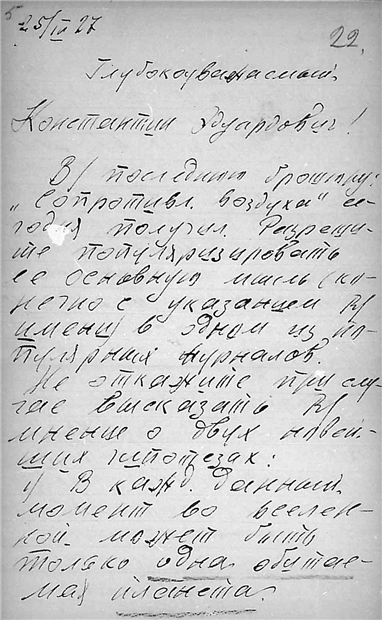 25/IV 27
22.
Глубокоуважаемый
Константин Эдуардович!
В/ последнюю брошюру:
„Сопротивл. воздуха" се-
годня получил. Разреши-
те популяризировать
ее основную мысль (ко-
нечно с указанием В/
имени) в одном из по-
пулярных журналов.
Не откажите при слу-
чае высказать В/
мнение о двух новей-
ших гипотезах:
1) В кажд. данный
момент во вселен-
ной может быть
только одна обитае-
мая планета.